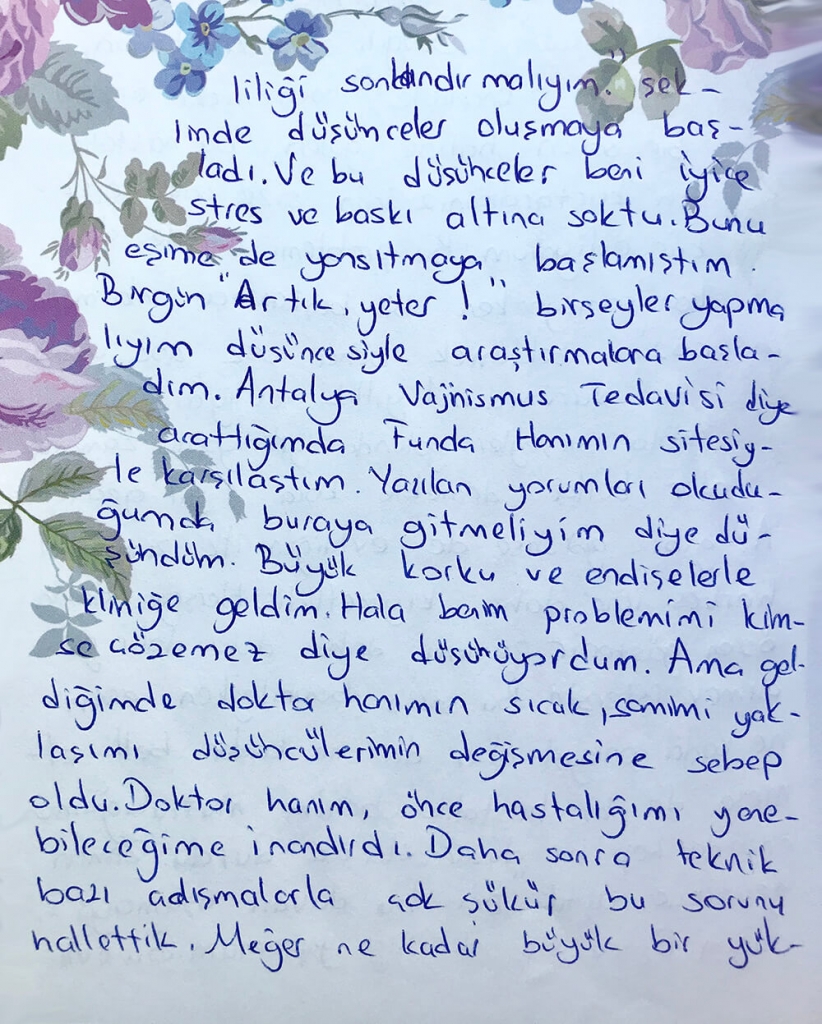 liliği sonlandırmalıyım." şek-
linde düşünceler oluşmaya baş-
ladı. Ve bu düşünceler beni iyice
stres ve baskı altına soktu. Bunu
eşime de yansıtmaya başlamıştım.
Birgün "Artık, yeter!" birşeyler yapma
lıyım düşüncesiyle araştırmalara başla-
dım. Antalya Vajinismus Tedavisi diye
arattığımda Funda Hanımın sitesiy-
le karşılaştım. Yazılan yorumları okudu-
ğumda buraya gitmeliyim diye dü-
şündüm. Büyük korku ve endişelerle
kliniğe geldim. Hala benim problemimi kim-
se çözemez diye düşünüyordum. Ama gel-
diğimde doktor hanımın sıcak, samimi yak-
laşımı düşüncülerimin değişmesine sebep
oldu. Doktor hanım, önce hastalığımı yene-
bileceğime inandırdı. Daha sonra teknik
bazı çalışmalarla çok şükür bu sorunu
hallettik. Meğer ne kadar büyük bir yük-